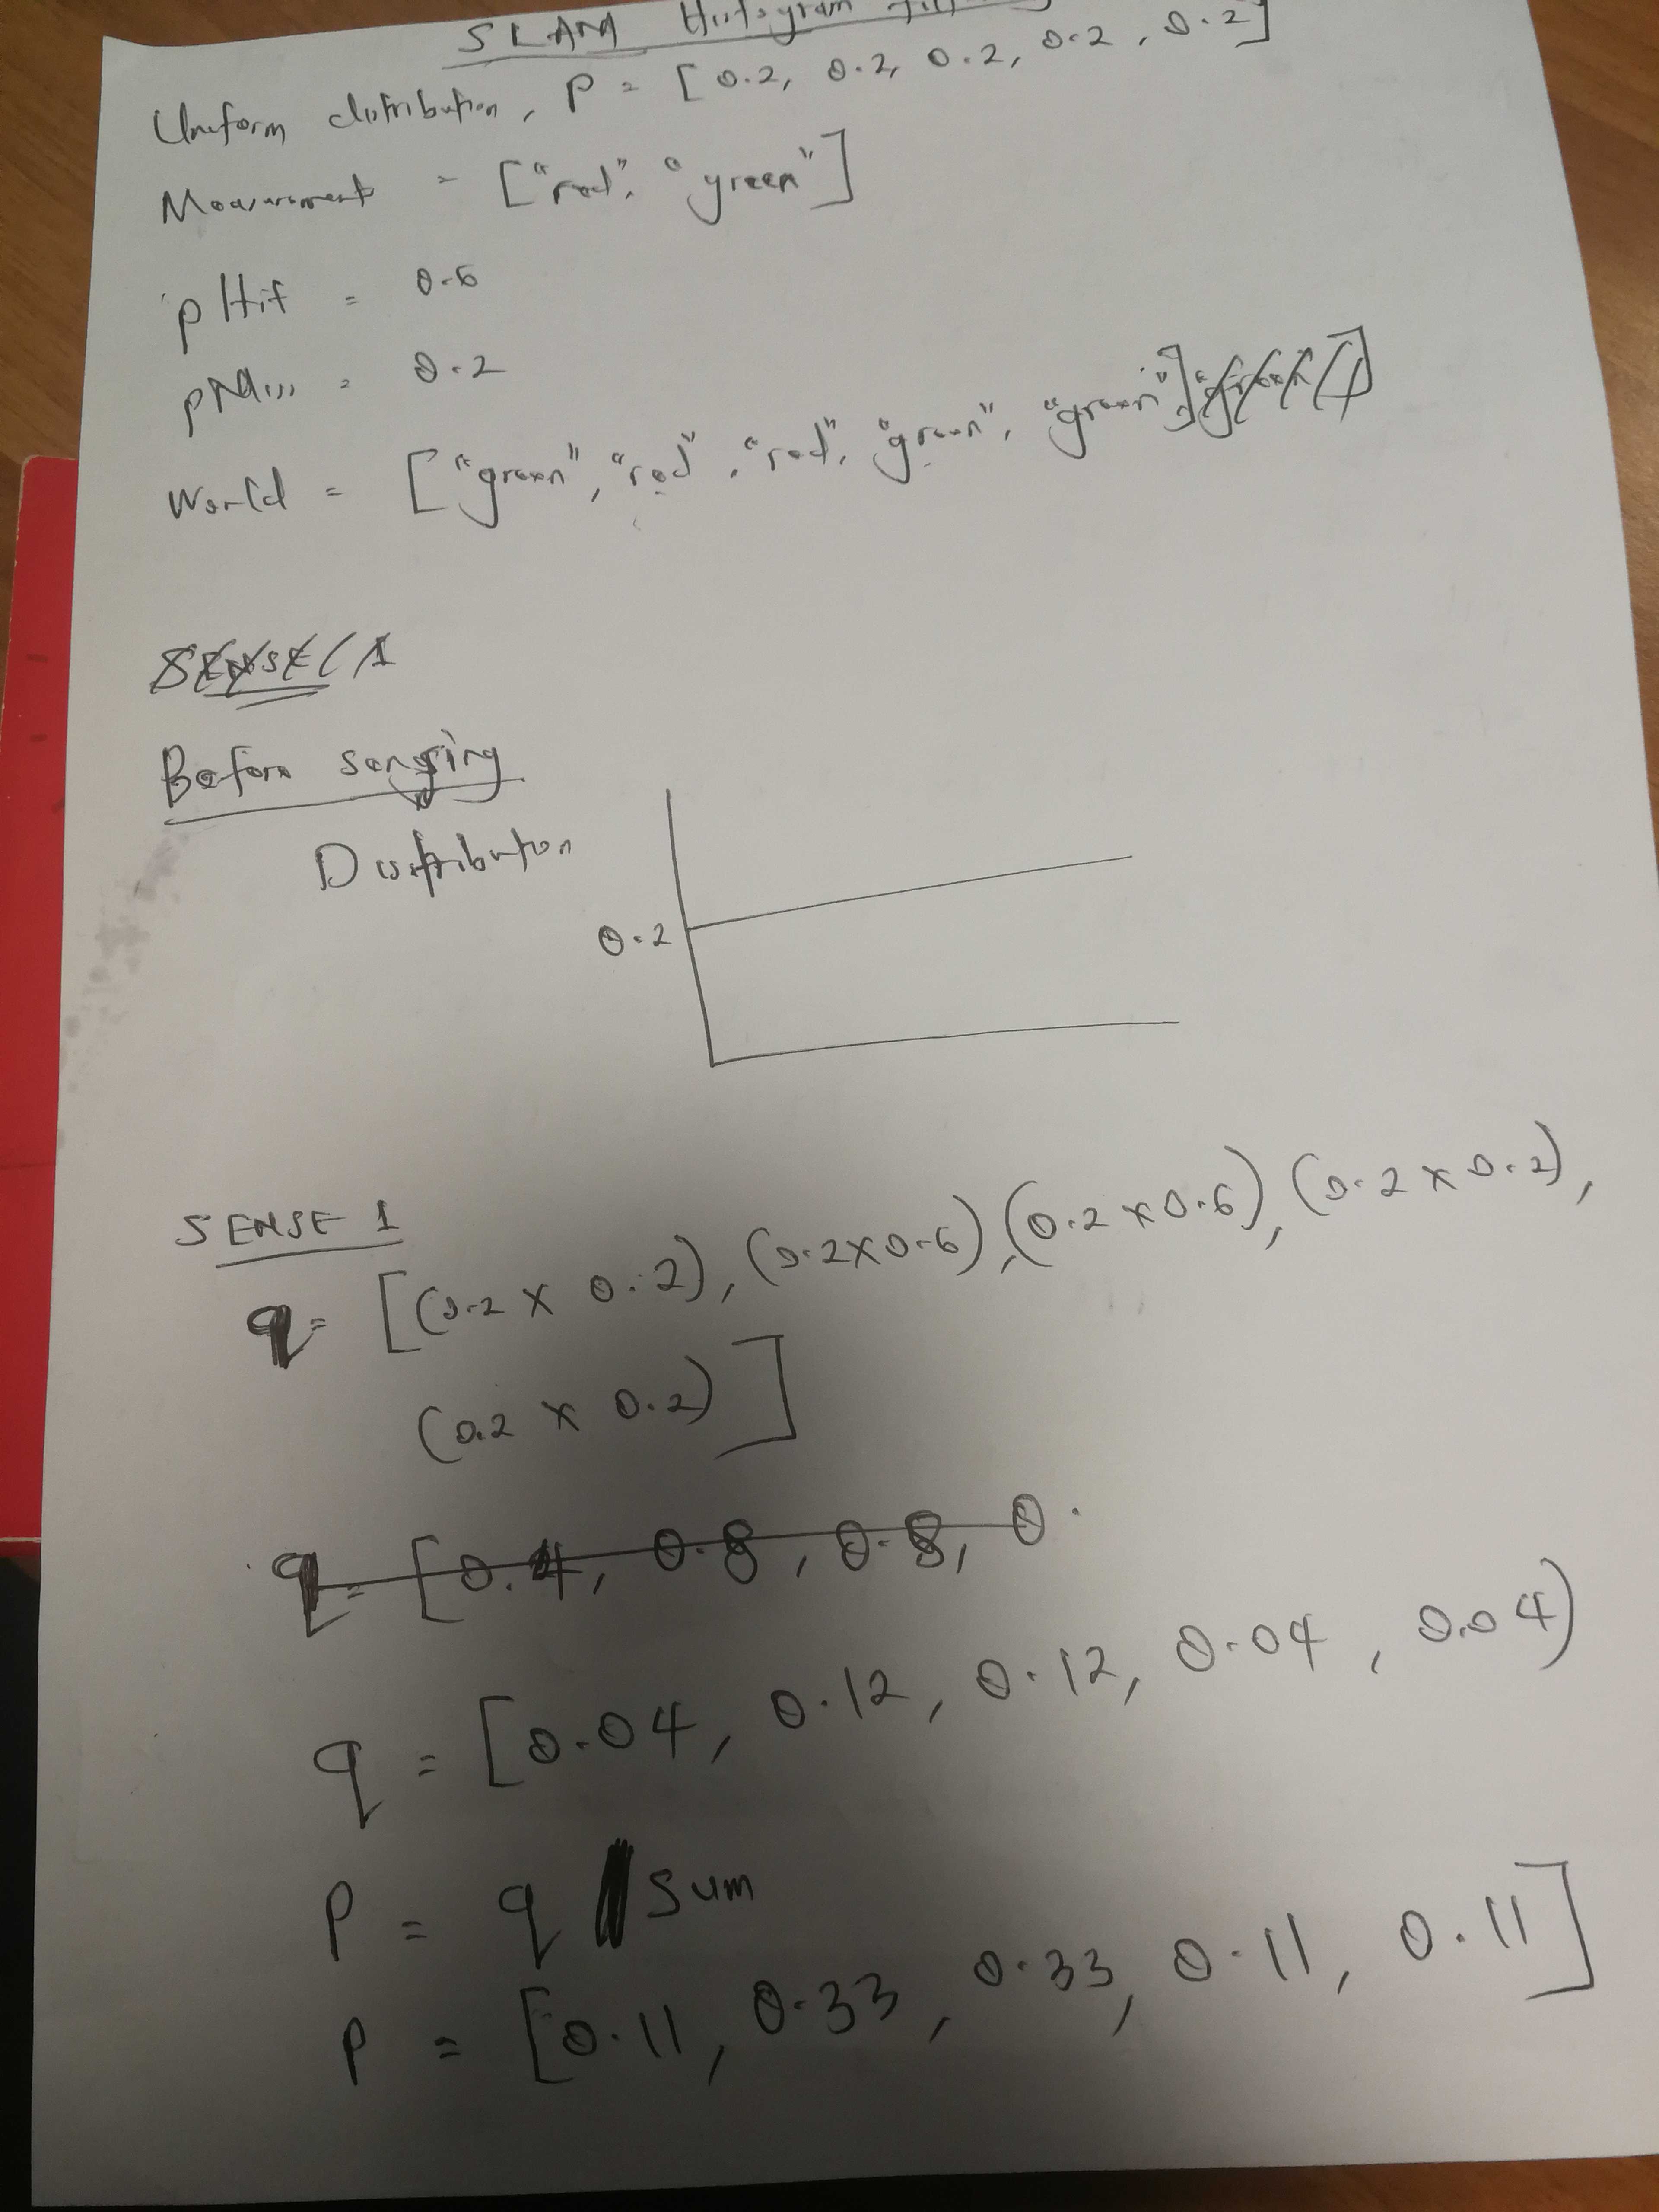 SLAM Histogram
Uniform distribution, P = [0.2, 0.2, 0.2, 0.2, 0.2]
Measurement = ["red", "green"]
pHit = 0.6
pMiss = 0.2
World = ["green", "red", "red", "green", "green"]
SENSE 1
Before sensing
Distribution
0.2
SENSE 1
q = [(0.2 x 0.2), (0.2x0.6), (0.2 x 0.6), (0.2 x 0.2),
(0.2 x 0.2)]
q = [0.4, 0.8, 0.8, 0.
q = [0.04, 0.12, 0.12, 0.04, 0.04)
P = q / sum
P = [0.11, 0.33, 0.33, 0.11, 0.11]